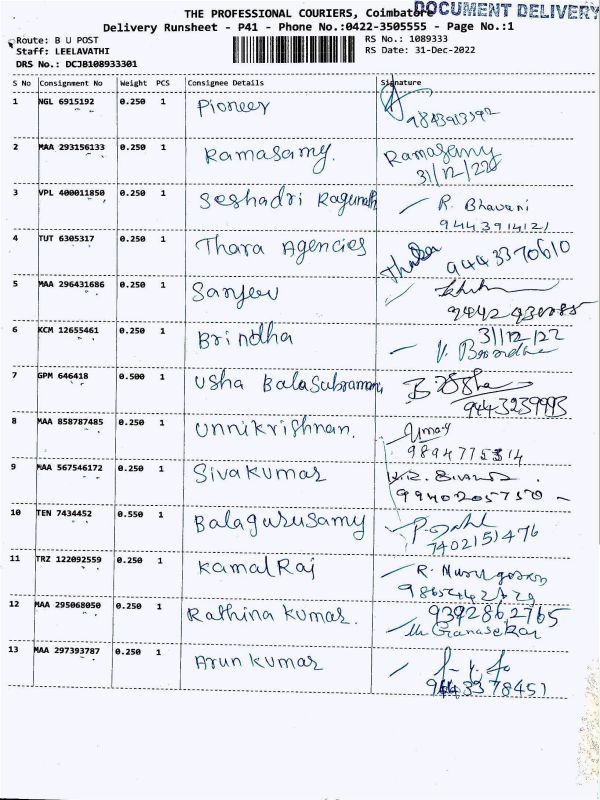 THE PROFESSIONAL COURIERS, Coimbatore
DOCUMENT DELIVERY
Delivery Runsheet - P41 - Phone No.:0422-3505555 - Page No.:1
Route: B U POST
RS No.: 1089333
Staff: LEELAVATHI
RS Date: 31-Dec-2022
DRS No.: DCJB108933301
S No Consignment No Weight PCS Consignee Details Signature
1 NGL 6915192 0.250 1 Pioneer
9843913592
2 MAA 293156133 0.250 1 Ramasamy. Ramasamy
31/12/22
3 VPL 400011850 0.250 1 Seshadri Ragunath R. Bhavani
9443914121
4 TUT 6305317 0.250 1 Thara Agencies Thara 9443370610
5 MAA 296431686 0.250 1 Sanjeev
6 KCM 12655461 0.250 1 Brindha 31/12/22
7 GPM 646418 0.500 1 Usha Balasubramani
9443239993
8 MAA 858787485 0.250 1 Unnikrishnan. Uma
9894775314
9 MAA 567546172 0.250 1 Sivakumar
9940205750
10 TEN 7434452 0.550 1 Balagurusamy
7402151476
11 TRZ 122092559 0.250 1 Kamal Raj R. Murugesan
12 MAA 295068050 0.250 1 Rathina Kumar. 9392862765
Gnanasekar
13 MAA 297393787 0.250 1 Arun Kumar
9443378451